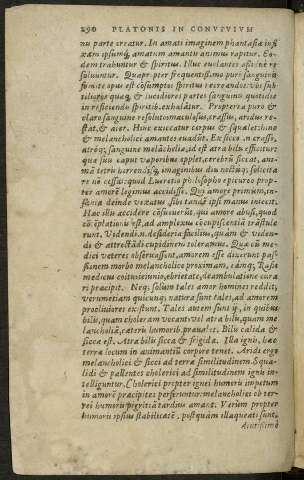 290 PLATONIS IN CONVIVIVM
nu parte creatur. In amati imaginem phantasiæ infi
xam ipsumq́; amatum amantis animus rapitur. Eo-
dem trahuntur & spiritus. Illuc euolantes assidue re
soluuntur. Quapropter frequentissimo puri sanguinis
fomite opus est ad consumptos spiritus recreandos: vbi sub
tiliores quæq́; & lucidiores partes sanguinis quotidie
in reficiendis spiritib. exhalātur. Propterea puro &
claro sanguine resoluto maculosus, crassus, aridus re-
stat, & ater. Hinc exiccatur corpus & squalet: hinc
& melancholici amantes euadūt. Ex sicco .n. crasso,
atroq́; sanguine melācholia, id est atra bilis efficitur:
quæ suu caput vaporibus opplet, cerebrū siccat, ani-
mā tetris horrendisq́; imaginibus diu noctuq́; solicita
re nō cessat: quod Lucretio philosopho epicureo prop-
ter amorē legimus accidisse. Qui amore primum, in-
sania deinde vexatus sibi tandē ipsi manus iniecit.
Hæc illis accidere cōsueuerūt, qui amore abusi, quod
cōtēplationis est, ad amplexus cōcupiscentiā trāstule
runt. Videndi .n. desideriū facilius, quàm & viden-
di & attrectādi cupidinem toleramus. Quæ cū me-
dici veteres obseruassent, amorem esse dixerunt pas-
sionem morbo melancholico proximam, eāmq́; Rasis
medicus coitu, ieiunio, ebrietate, deambulatione cura
ri præcipit. Neq. solum tales amor homines reddit,
verumetiam quicunq; natura sunt tales, ad amorem
procliuiores existunt. Tales autem sunt ij, in quibus
bilis, quam choleram vocant: vel atra bilis, quam me
lancholiā, cæteris humorib. præualet. Bilis calida &
sicca est. Atra bilis sicca & frigida. Illa ignis, hæc
terræ locum in animantiū corpore tenet. Arida ergo
melancholici & sicci ad terræ similitudinem. Squa-
lidi & pallentes cholerici ad similitudinem ignis in-
telliguntur. Cholerici propter ignei humoris impetum
in amorē præcipites feruntur: melancholici ob ter-
rei humoris pigritiā tardius amant. Verùm propter
humoris ipsius stabilitatē, postquam illaqueati sunt,
diutissimè